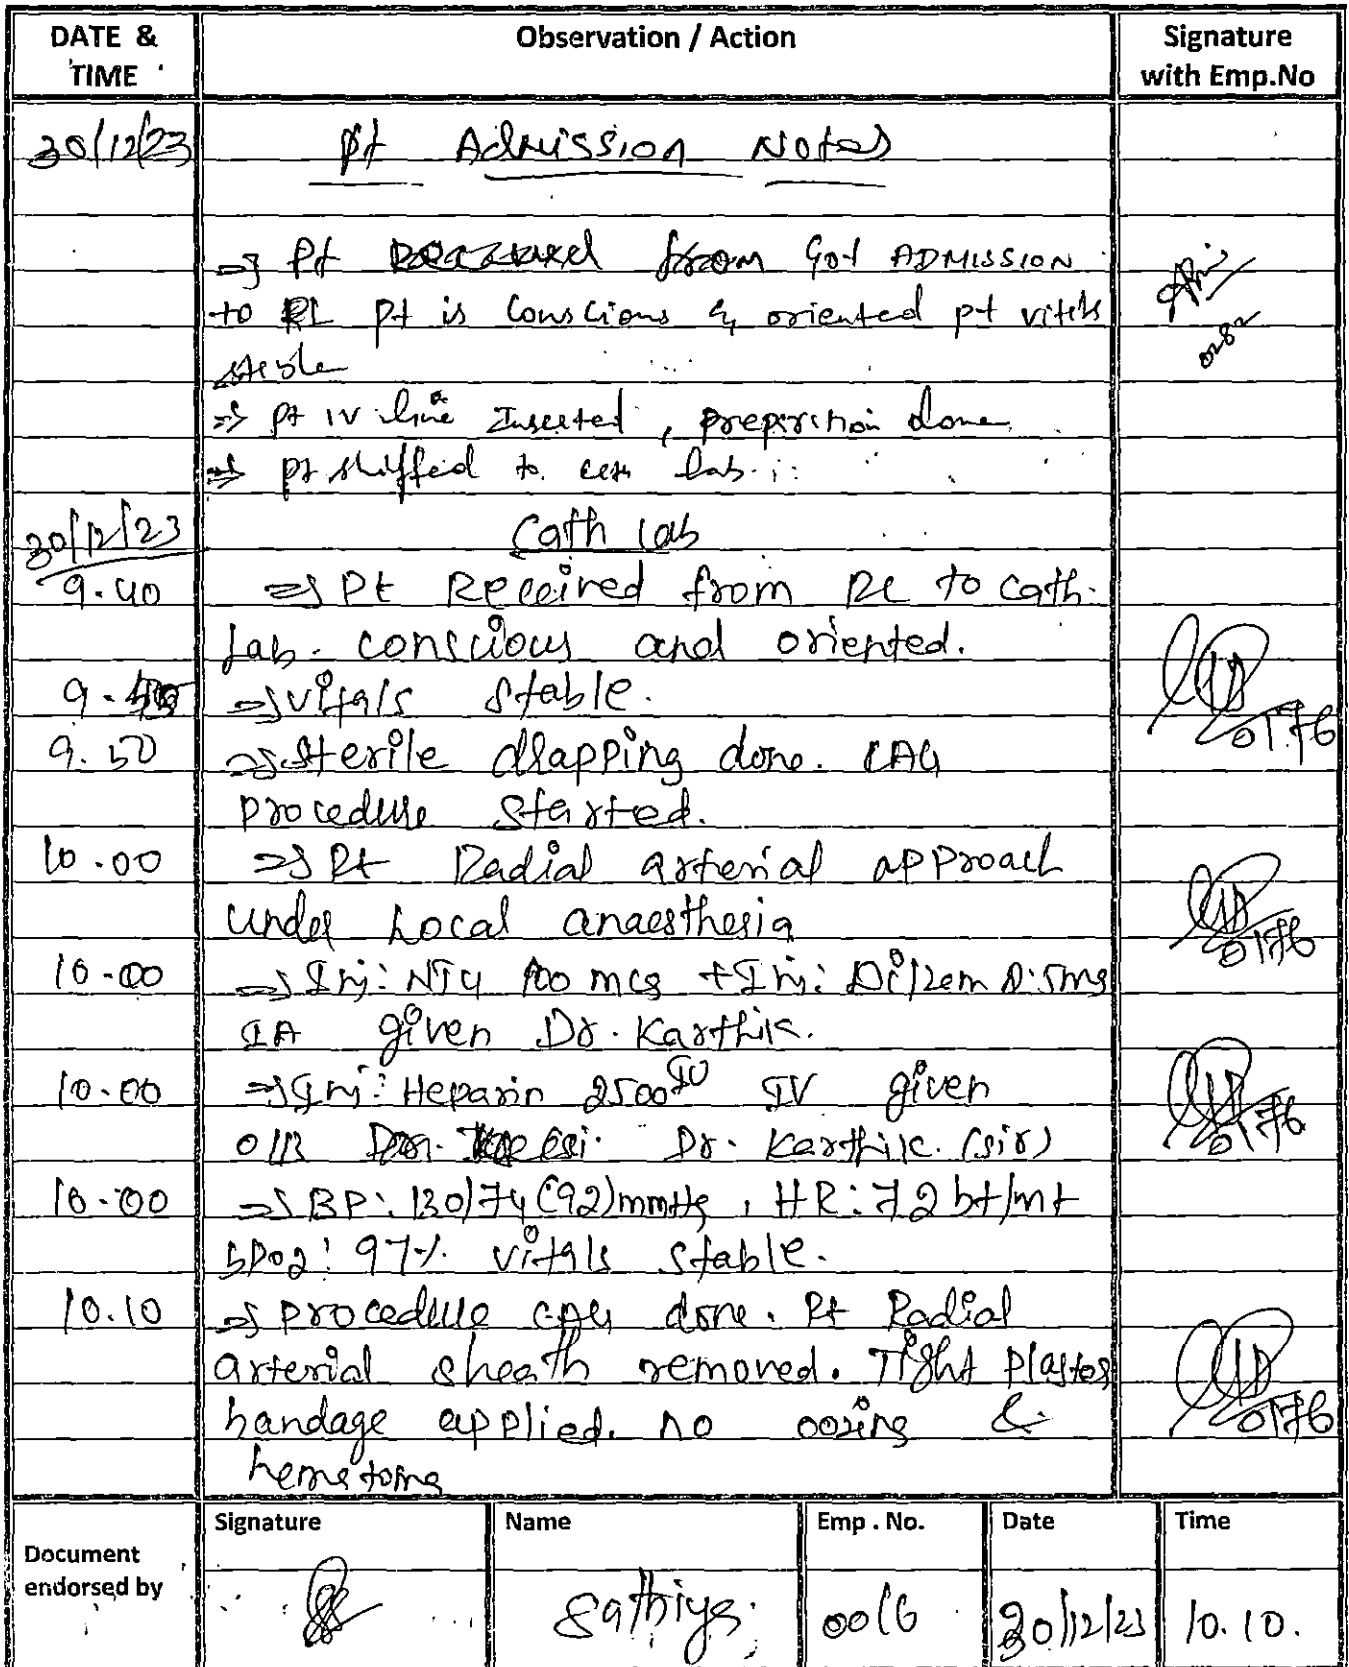 DATE & TIME
Observation / Action
Signature with Emp.No
30/12/23
Pt Admission Notes
⇒ Pt from Got ADMISSION
to RL pt is Conscious & oriented pt vitals
stable
0282
⇒ Pt IV line Inserted, preparation done
⇒ pt shiffed to cath lab.
30/12/23
Cath lab
9.40
⇒ Pt Received from RL to cath.
Lab. conscious and oriented.
9.45
⇒ vitals stable.
0176
9.50
⇒ Sterile drapping done. CAG
procedure started.
10.00
⇒ Rt Radial arterial approach
under Local anaesthesia
0176
10.00
⇒ Inj: NTG 100 mcg + Inj: Dilzem 2.5mg
IA given Dr. Karthik.
10.00
⇒ Inj: Heparin 2500 IU IV given
O/B Dr. Karthik. (sir)
0176
10.00
⇒ BP: 130/74 (92) mmHg, HR: 72 bt/mt
SPO2: 97% vitals stable.
10.10
⇒ procedure CAG done. Rt Radial
arterial sheath removed. Tight plaster
bandage applied. no oozing &
hematoma
0176
Document endorsed by
Signature
Name
Emp . No.
Date
Time
Sathiya
0016
30/12/23
10.10.